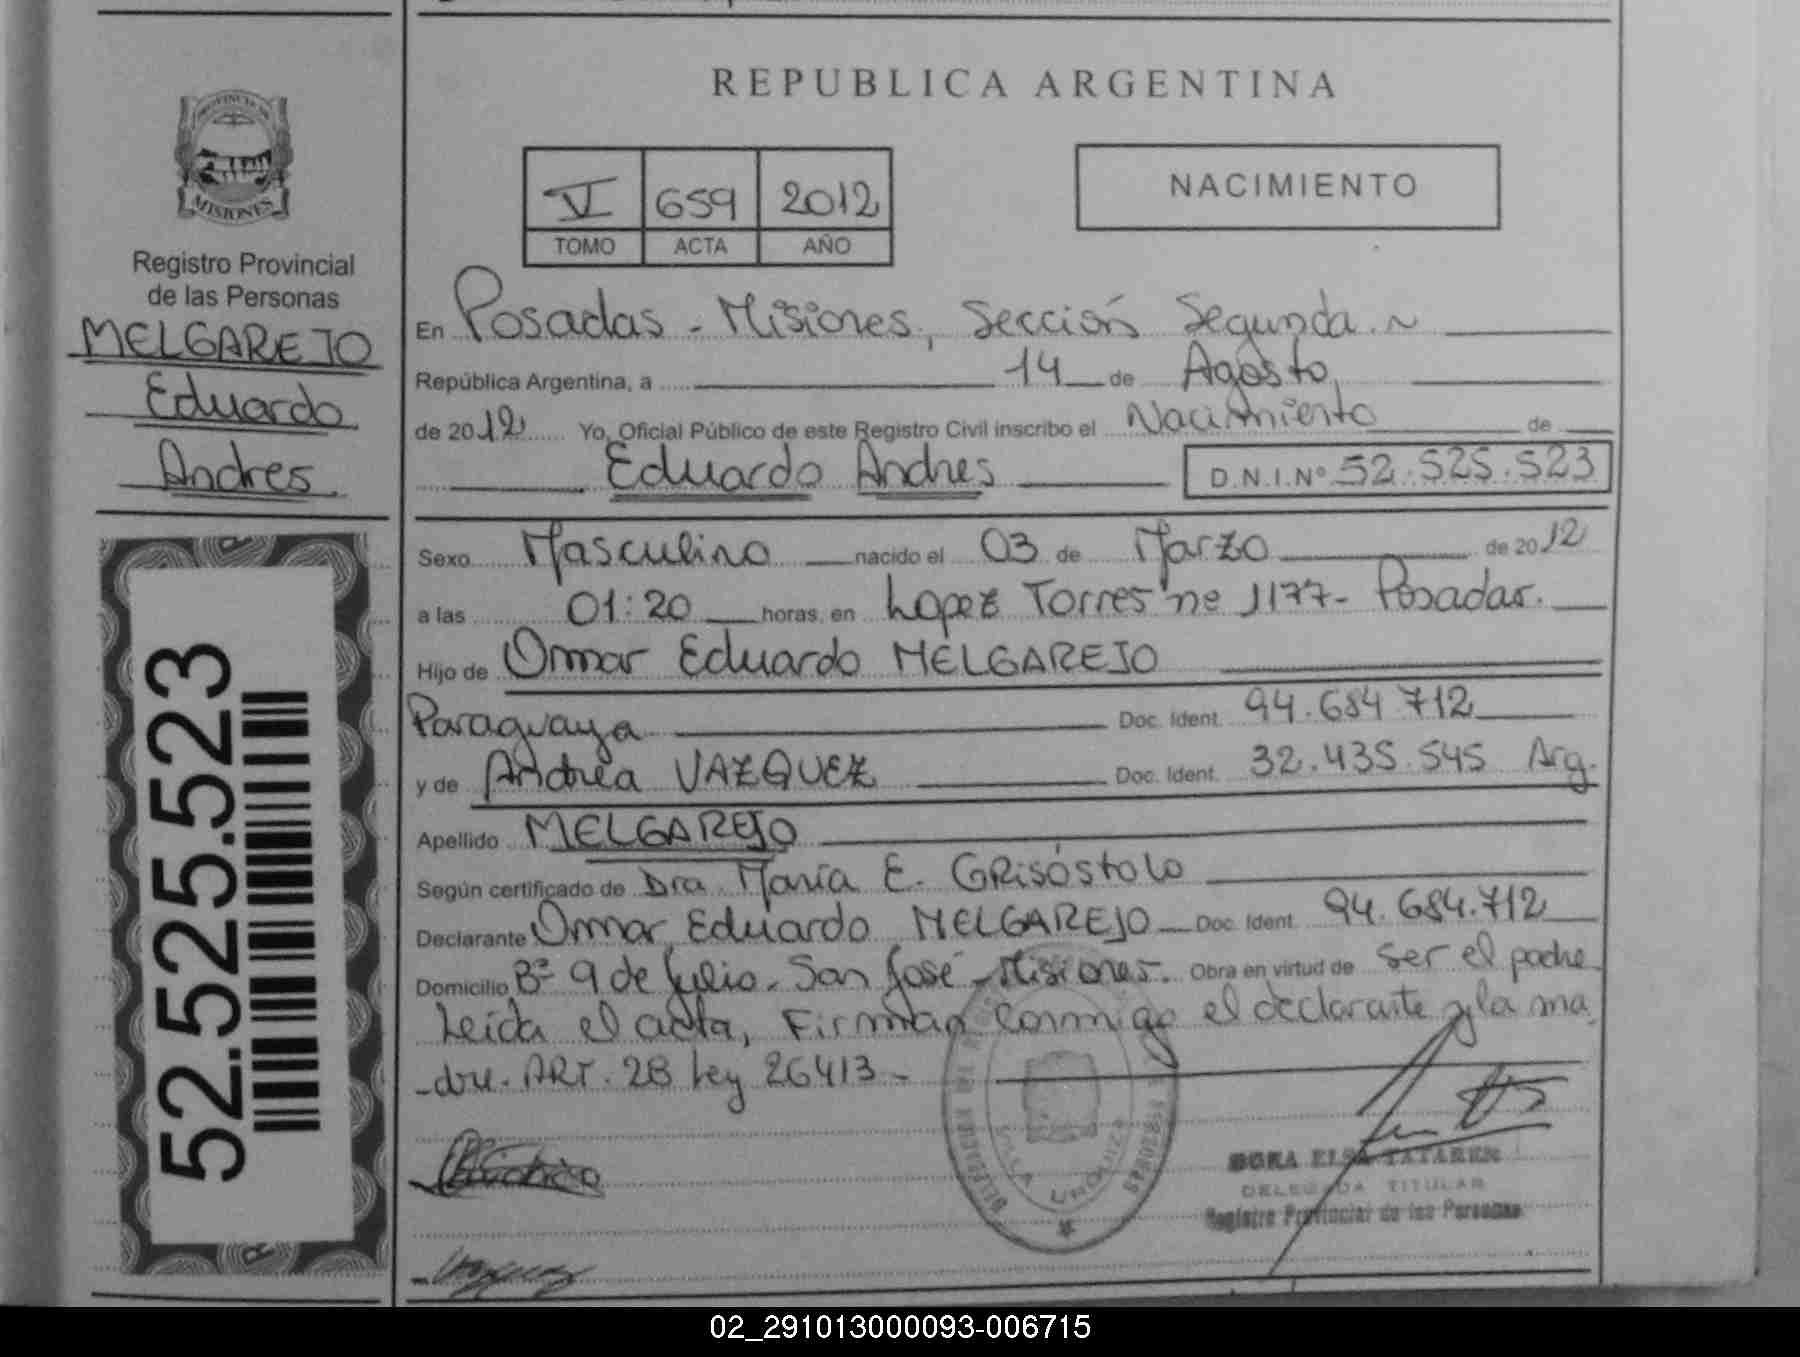 REPUBLICA ARGENTINA
PROVINCIA DE
MISIONES
Registro Provincial
de las Personas
MELGAREJO
Eduardo
Andres
52.525.523
VI 659 2012
TOMO ACTA AÑO
NACIMIENTO
En Posadas - Misiones, Sección Segunda.
República Argentina, a 14 de Agosto,
de 2012 Yo, Oficial Público de este Registro Civil inscribo el Nacimiento de
Eduardo Andres D.N.I.Nº 52.525.523
Sexo Masculino nacido el 03 de Marzo de 2012
a las 01:20 horas, en Lopez Torres nº 1177- Posadas.
Hijo de Omar Eduardo MELGAREJO
Paraguaya Doc. Ident. 94.684.712
y de Andrea VAZQUEZ Doc. Ident. 32.435.545 Arg.
Apellido MELGAREJO
Según certificado de Dra María E. GRisóstolo
Declarante Omar Eduardo MELGAREJO Doc. Ident. 94.684.712
Domicilio Bº 9 de Julio - San José - Misiones. Obra en virtud de ser el padre
Leída el acta, Firman conmigo el declarante y la ma
-dre. ART. 28 Ley 26413 -
VILLA URQUIZA
DORA ELSA TATAREN
DELEGADA TITULAR
Registro Provincial de las Personas
02_291013000093-006715